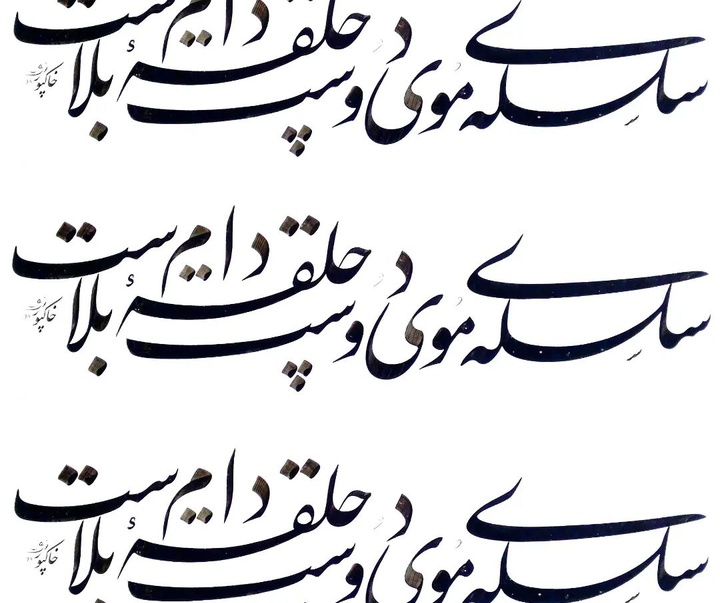 سلسله موی دوست حلقه دام بلاست
سلسله موی دوست حلقه دام بلاست
سلسله موی دوست حلقه دام بلاست